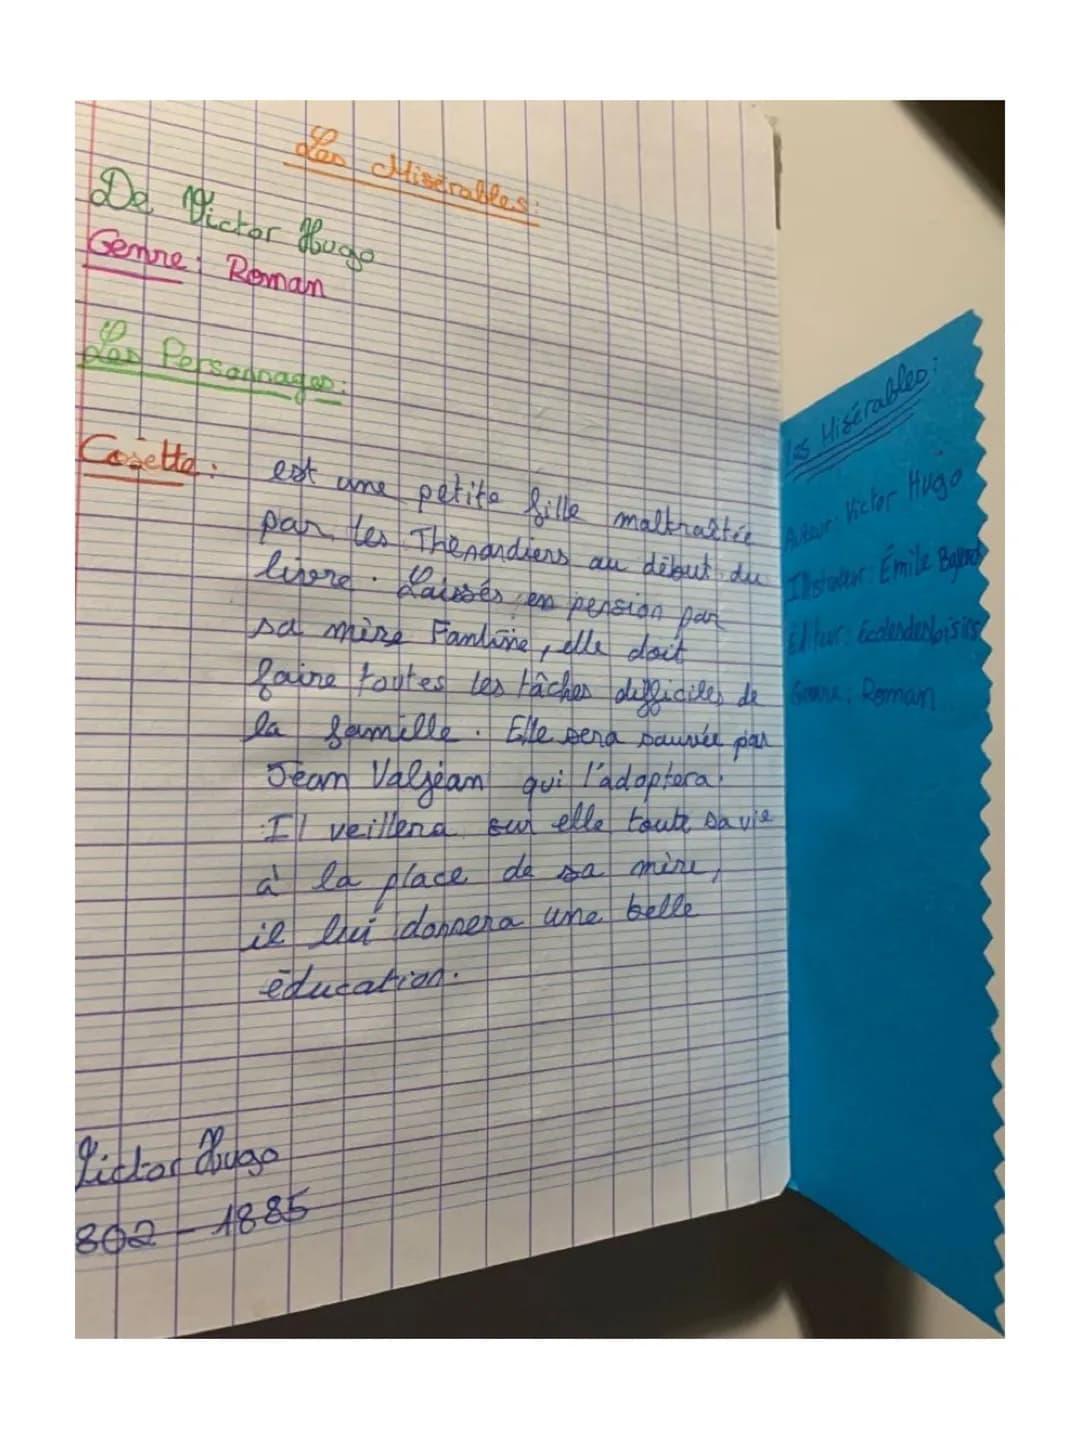 Les Misérables:
De Victor Hugo
Genre: Roman
Les Personnages:
Cosette: est une petite fille maltraitée
par les Thénardiers au début du
livre. Laissés en pension par
sa mère Fantine, elle doit
faire toutes les tâches difficiles de
la famille. Elle sera sauvée par
Jean Valjean qui l'adoptera.
Il veillera sur elle toute sa vie
à la place de sa mère,
il lui donnera une belle
éducation.
Victor Hugo
802 - 1885
Les Misérables:
Auteur: Victor Hugo
Illustrateur: Émile Bayard
Editeur: Ecoledesloisirs
Genre: Roman